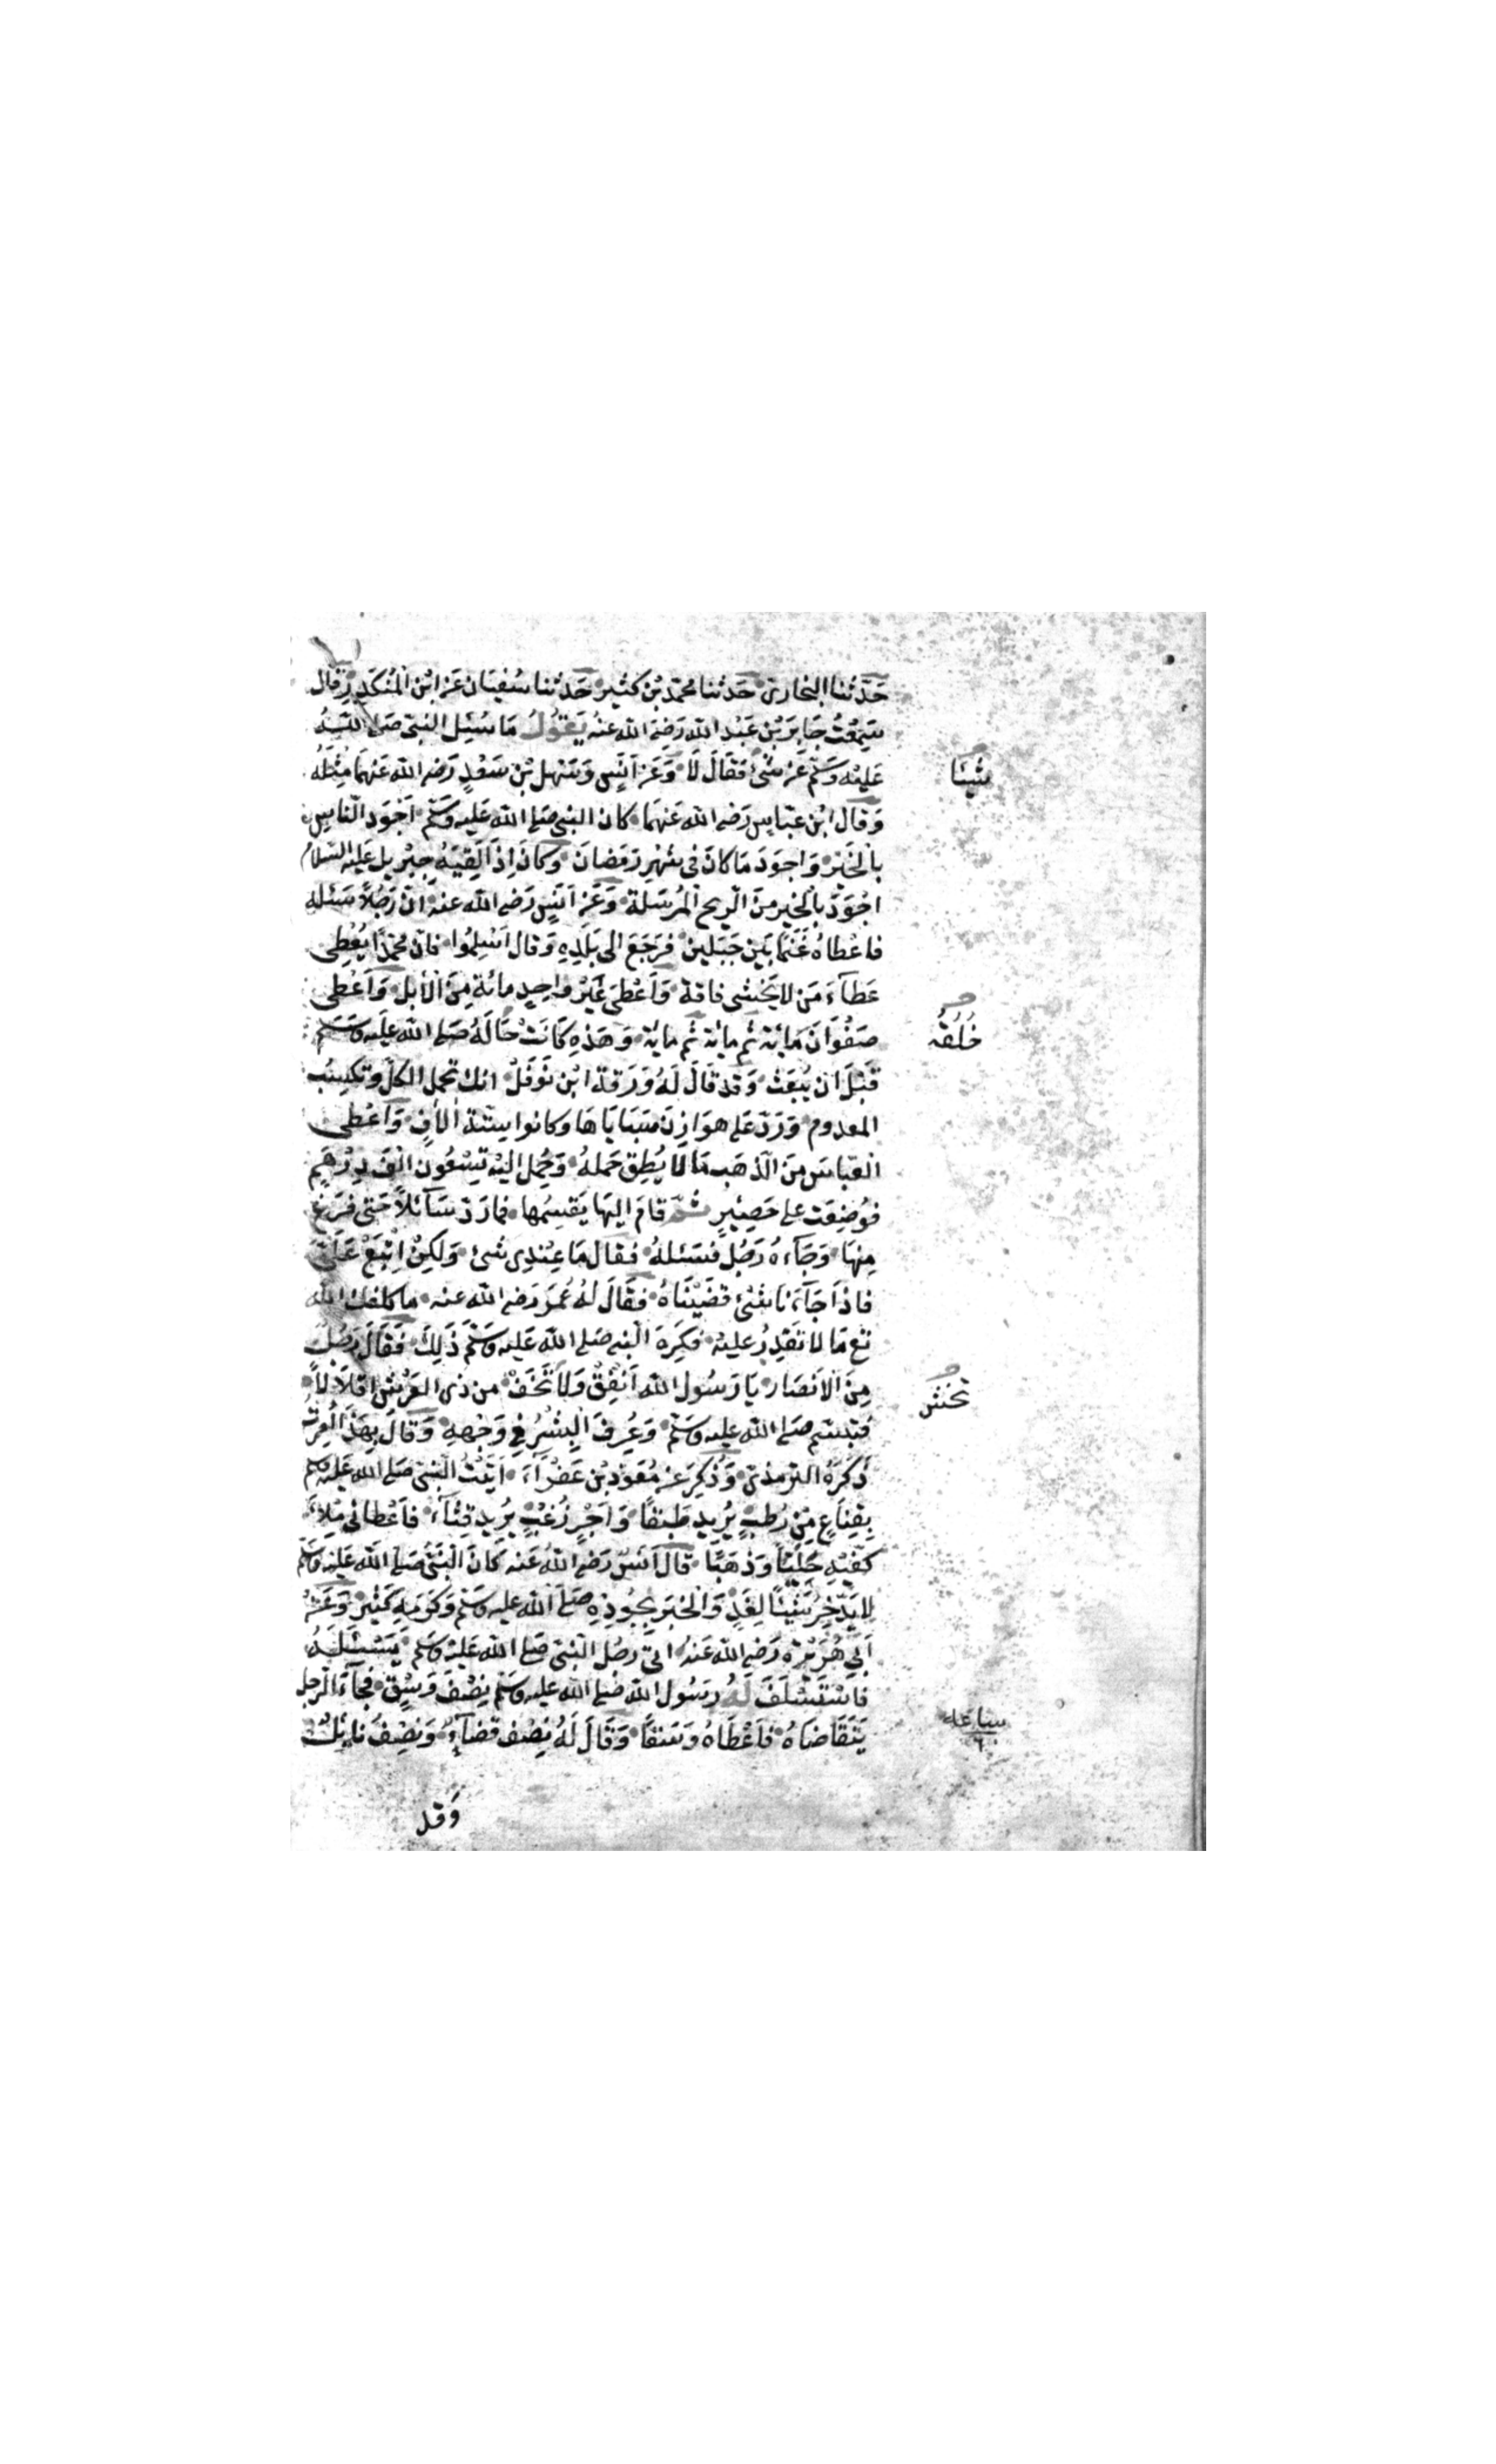 حَدَّثَنَا البخاري حَدثنا محمّد بْن كثير حَدثنا سُفيَان عَن ابْن المُنكَدِر قال
سَمِعْتُ جَابرَ بْن عَبْد الله رَضي الله عَنهُ يَقُولُ مَا سُئِل النبي صَلى اللهُ
عَليْه وَسَلم عَن شَئٍ فَقَالَ لَا وَعَن اَنَسٍ وَسَهل بْن سَعْدٍ رَضي الله عَنهمَا مِثلهُ
شَيئًا
وَقال ابْن عبّاسٍ رَضي الله عَنهُمَا كان النبي صَلى الله عَليه وَسَلم اَجْوَد النّاسِ
بالخَيْر وَاجوَدَ مَا كانَ فى شهْر رَمَضانَ وَكانَ اِذَا لَقِيَهُ جِبْريل عَليْه السّلامُ
اجْوَدَ بالخير منَ الرّيح المُرسَلة وَعَن اَنَسٍ رَضي الله عنه اَنّ رَجُلاً سَئله
فاعْطاهُ غَنَمًا بَيْن جَبَلين فرَجَعَ الى بَلَدِهِ وَقال اَسْلِمُوا فانّ محمّدًا يُعْطِى
عَطآءَ مَن لا يَخْشى فاقة وَاَعْطىَ غَيْر وَاحِدٍ مائة مِنَ الأبل وَاَعْطى
صَفْوَانَ مَائة ثُم مائة ثُم مائة وَهَذِهِ كَانَتْ حَالَهُ صَلى الله عَليْه وَسَلم
خُلُقُه
قَبْلَ ان يُبْعَث وَقد قَالَ لَهُ وَرَقة ابْن نَوْفَلْ انك تحمل الكلّ وَتكسِبُ
المعدوم وَرَدّ عَلى هوَازن سَبَايَاهَا وكانوا ستّة اٰلافٍ وَاَعْطى
العَبّاسَ منَ الذهَب مَا لا يُطِق حَملهُ وَحُمل اليْه تِسْعُون الف دِرْهَمٍ
فوُضِعَت على حَصِيْرٍ ثُمّ قامَ اليهَا يَقْسِمُها فمارَدّ سَآئلاً حَتى فرَغَ
مِنهَا وَجَآءهُ رَجُل فسَئلهُ فقال مَا عِنْدى شئ وَلكِنْ اِبْتَعْ عَلَىّ
فاذَا جَآءَنا شئ قضَيْنَاهُ فقَالَ لَهُ عُمَر رَضي الله عنه ما كلفك الله
تع مَا لا تقدِرُ عليْه فكرِهَ النبي صَلى الله عَليه وَسَلم ذلِكَ فقالَ رَجُل
مِنَ الاَنصَار يَا رَسُول الله اَنْفِقْ وَلا تَخَفْ من ذى العَرْشِ اقلاَلاً
تخشَ
فتبَسّم صَلى الله عليه وَسَلم وَعُرفَ البِشْرُ فى وَجْههِ وَقالَ بِهَذا اُمِرْتُ
ذَكرَهُ الترمذىّ وَذُكِرَ عَن مُعَوّذ بْن عَفْرآءَ اَتَيْتُ النبىّ صَلى الله عَليْه وَسَلم
بِقِناعٍ مِن رُطبٍ يُريد طَبَقًا وَاَجْرٍ زُغْبٍ يُريد قِثآءَ فاَعْطانى مِلأَ
كفّيْهِ حُلِيًّا وَذهَبًا قالَ اَنسٌ رَضي الله عَنه كانَ النّبىّ صَلى الله عَليْه وَسَلم
لا يَدّخِرُ شَيْئًا لِغَدٍ وَالخبَر بجُودِهِ صَلى الله عَليه وَسَلم وَكرَمِهِ كَثير وَعَنْ
اَبي هُرَيْرة رَضي الله عَنْهُ اتىَ رجُل النّبىّ صَلى الله عَليْه وَسَلم يَسْئلُهُ
فاسْتَسْلفَ لَهُ رسُول الله صَلى الله عليه وَسَلم نِصْفَ وَسْقٍ فجآءَ الرّجل
يَتَقَاضاهُ فاَعْطَاهُ وَسْقًا وَقَالَ لَهُ نِصْف قضآءٌ وَنِصْفٌ نايِلٌ
وَقد